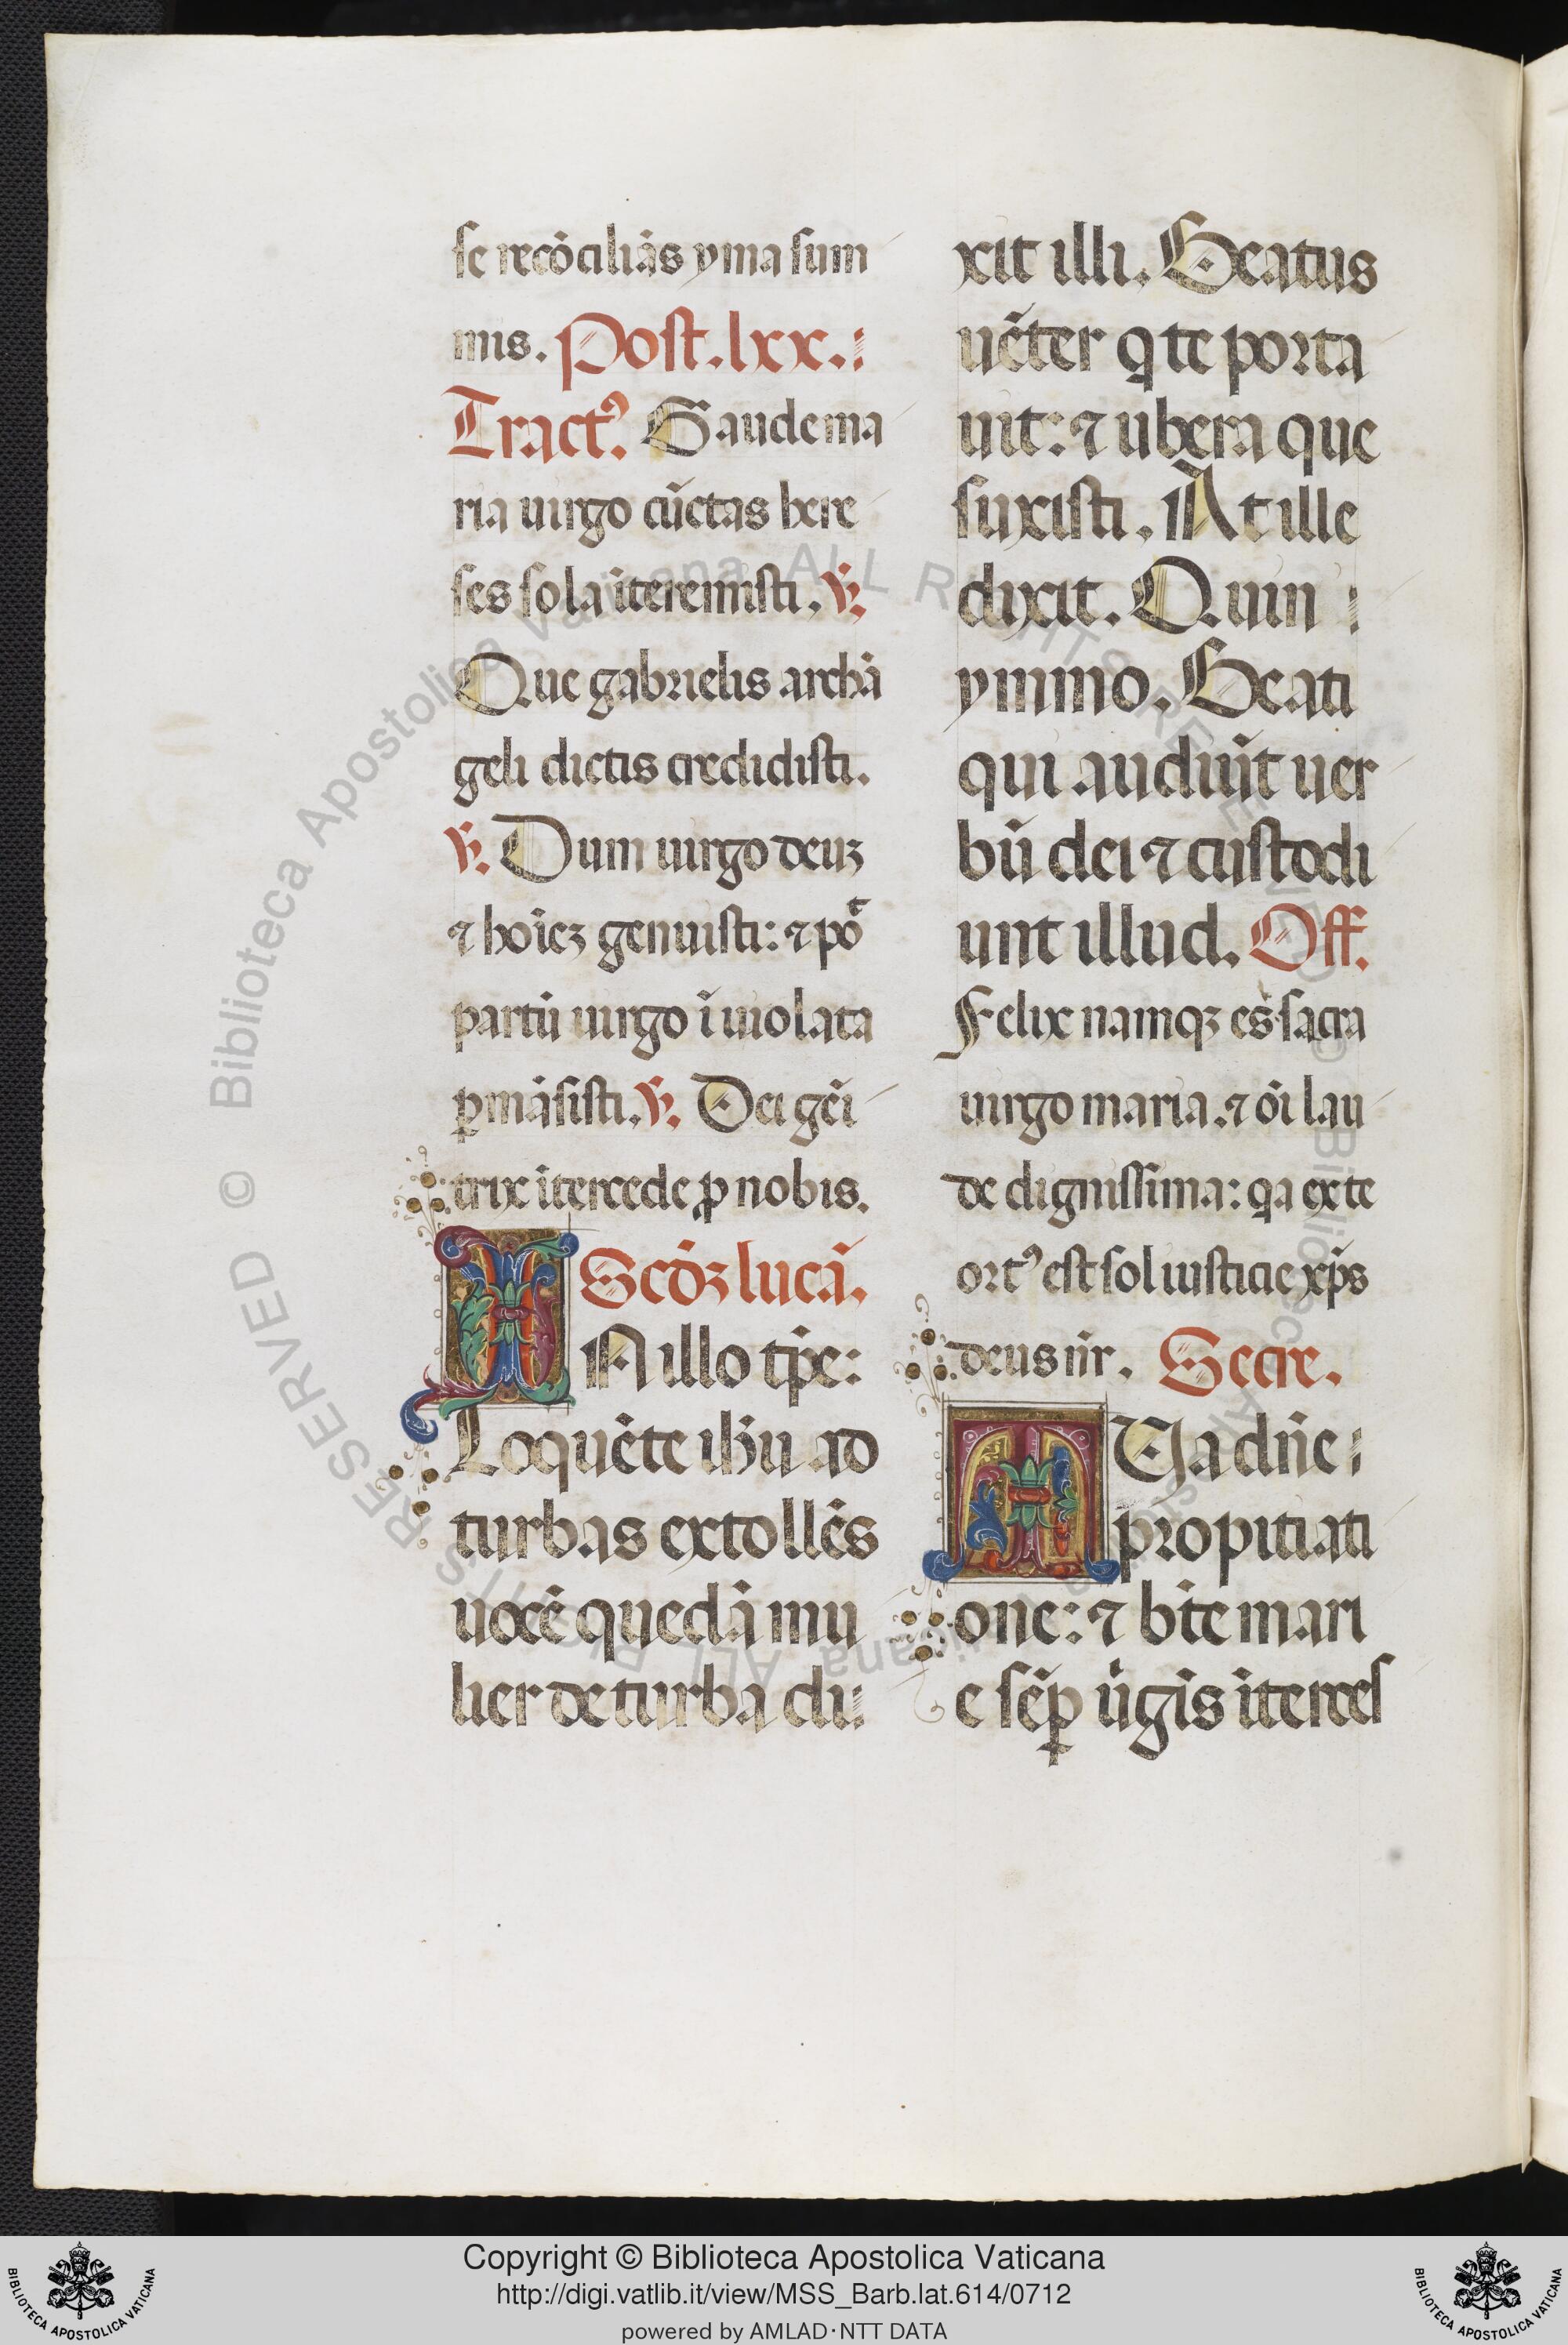 se recōciliās yma sum
mis. Post. lxx.
Tractꝰ. Gaude ma
ria uirgo cūctas here
ses sola īteremisti. ℣.
Que gabrielis archā
geli dictis credidisti.
℣. Dum uirgo deuꝫ
⁊ hoīeꝫ genuisti: ⁊ pō
partū uirgo īuiolata
ꝑmāsisti. ℣. Dei gēi
trix ītercede ꝓ nobis.
Scďꝫ lucā.
IN illo tp̄e:
Loquēte ih̄u ad
turbas extollēs
uocē quedā mu
lier de turba di
xit illi. Beatus
uēter q te porta
uit: ⁊ ubera que
suxisti. At ille
dixit. Quin
ymmo. Beati
qui audiūt uer
bū dei ⁊ custodi
unt illud. Off.
Felix namqꝫ es sacra
uirgo maria. ⁊ oī lau
de dignissima: qa ex te
ortꝰ est sol iusticie xp̄s
deus nr̄. Secre.
TUa dn̄e
propitiati
one: ⁊ bt̄e mari
e sēꝑ ūgīs īterces
Copyright © Biblioteca Apostolica Vaticana
http://digi.vatlib.it/view/MSS_Barb.lat.614/0712
powered by AMLAD·NTT DATA
BIBLIOTECA APOSTOLICA VATICANA
BIBLIOTECA APOSTOLICA VATICANA
© Biblioteca Apostolica Vaticana ALL RIGHTS RESERVED
© Biblioteca Apostolica Vaticana ALL RIGHTS RESERVED